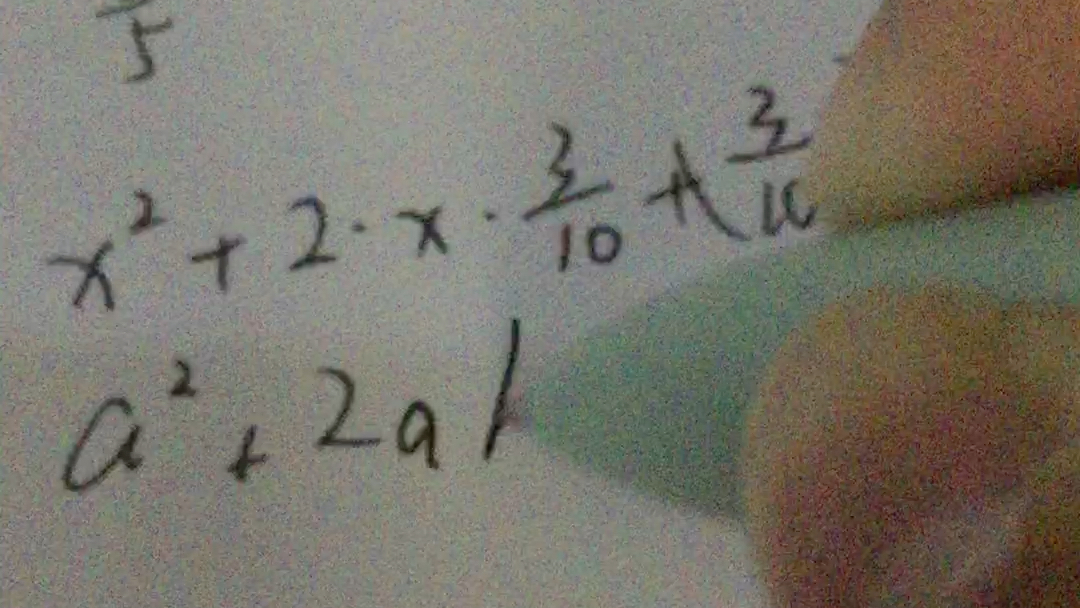 5
x² + 2 · x · 3/10 + (3/10
a² + 2a